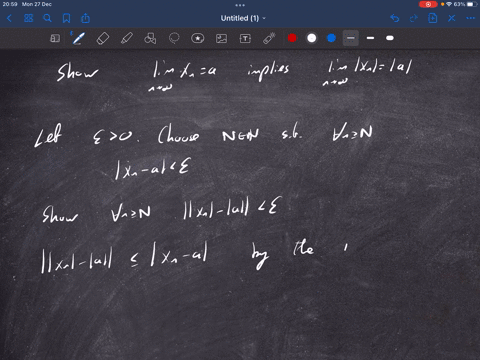 20:59 Mon 27 Dec
63%
Untitled (1)
Show lim xₙ = a implies lim |xₙ| = |a|
n→∞ n→∞
Let ε > 0. Choose N∈ℕ s.t. ∀n≥N
|xₙ - a| < ε
Show ∀n≥N ||xₙ| - |a|| < ε
||xₙ| - |a|| ≤ |xₙ - a| by the